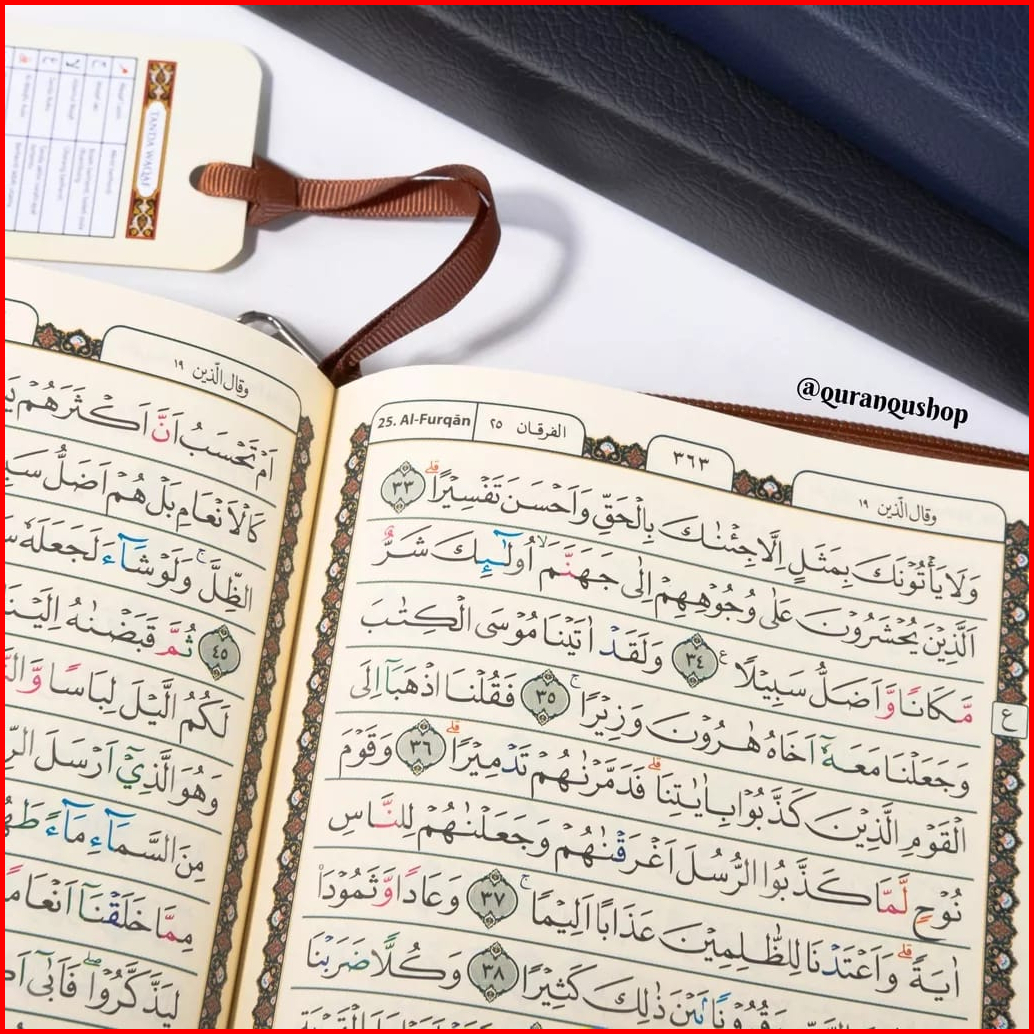 TANDA WAQAF
@quranqushop
25. Al-Furqān
الفرقان ٢٥
٣٦٣
وقال الّذين ١٩
وَلَا يَأْتُوْنَكَ بِمَثَلٍ اِلَّا جِئْنٰكَ بِالْحَقِّ وَاَحْسَنَ تَفْسِيْرًاۗ ٣٣
اَلَّذِيْنَ يُحْشَرُوْنَ عَلٰى وُجُوْهِهِمْ اِلٰى جَهَنَّمَۙ اُولٰۤىِٕكَ شَرٌّ
مَّكَانًا وَّاَضَلُّ سَبِيْلًا ࣖ ٣٤ وَلَقَدْ اٰتَيْنَا مُوْسَى الْكِتٰبَ
وَجَعَلْنَا مَعَهٗٓ اَخَاهُ هٰرُوْنَ وَزِيْرًاۚ ٣٥ فَقُلْنَا اذْهَبَآ اِلَى
الْقَوْمِ الَّذِيْنَ كَذَّبُوْا بِاٰيٰتِنَاۗ فَدَمَّرْنٰهُمْ تَدْمِيْرًاۗ ٣٦ وَقَوْمَ
نُوْحٍ لَّمَّا كَذَّبُوا الرُّسُلَ اَغْرَقْنٰهُمْ وَجَعَلْنٰهُمْ لِلنَّاسِ
اٰيَةًۗ وَاَعْتَدْنَا لِلظّٰلِمِيْنَ عَذَابًا اَلِيْمًاۚ ٣٧ وَعَادًا وَّثَمُوْدَا۟
وَقُرُوْنًاۢ بَيْنَ ذٰلِكَ كَثِيْرًا ٣٨ وَكُلًّا ضَرَبْنَا
ع
وقال الّذين ١٩
اَمْ تَحْسَبُ اَنَّ اَكْثَرَهُمْ
كَالْاَنْعَامِ بَلْ هُمْ اَضَلُّ
الظِّلَّۚ وَلَوْ شَاۤءَ لَجَعَلَهٗ
٤٥ ثُمَّ قَبَضْنٰهُ
لَكُمُ الَّيْلَ لِبَاسًا
وَهُوَ الَّذِيْٓ اَرْسَلَ
مِنَ السَّمَاۤءِ مَاۤءً
مِمَّا خَلَقْنَآ اَنْعَامًا
لِيَذَّكَّرُوْاۖ فَاَبٰىٓ